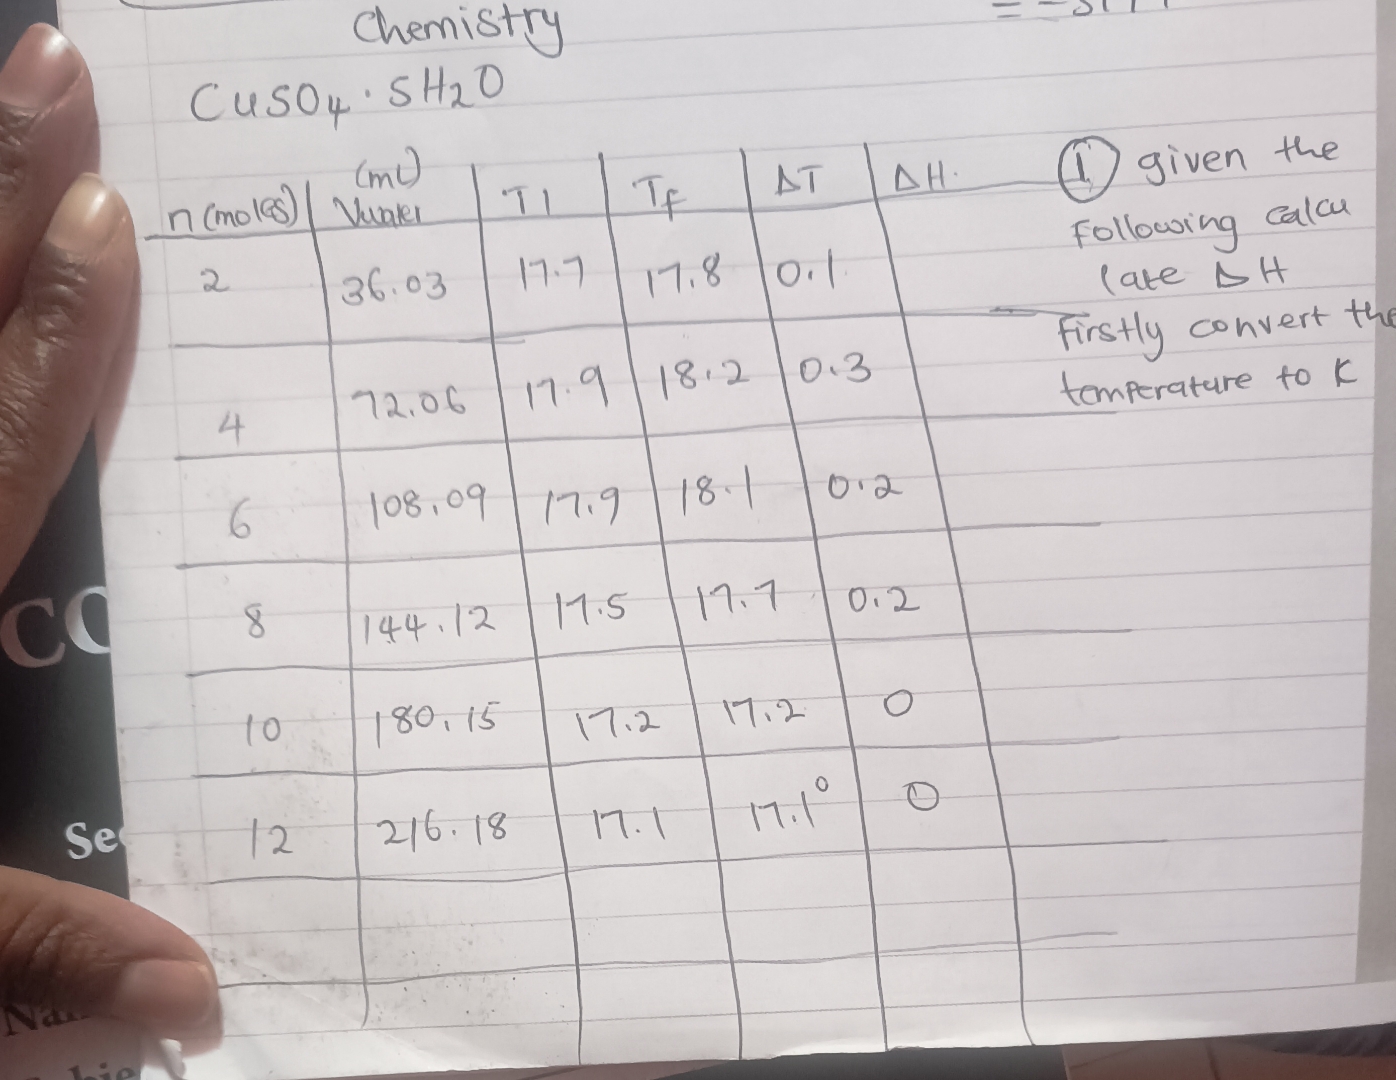 Chemistry
CuSO4 · 5H2O
n (moles) | (ml) Vwater | T1 | Tf | ΔT | ΔH.
2 | 36.03 | 17.7 | 17.8 | 0.1
4 | 72.06 | 17.9 | 18.2 | 0.3
6 | 108.09 | 17.9 | 18.1 | 0.2
8 | 144.12 | 17.5 | 17.7 | 0.2
10 | 180.15 | 17.2 | 17.2 | 0
12 | 216.18 | 17.1 | 17.1° | 0
① given the
Following calcu
late ΔH
Firstly convert the
temperature to K
CO
Se